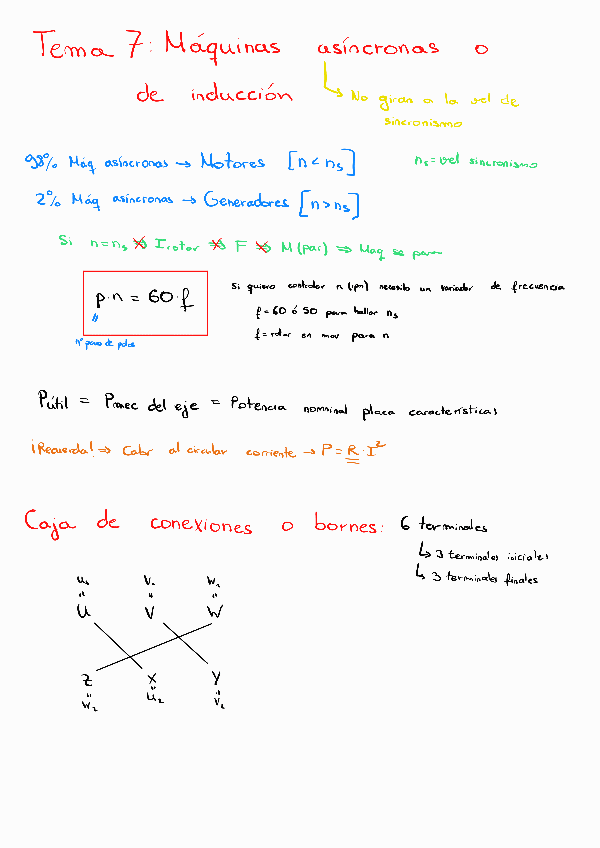 Tema 7: Máquinas asíncronas o
de inducción
↳ No giran a la vel de
sincronismo
98% Máq asíncronas → Motores [n < ns]
ns = vel sincronismo
2% Máq asíncronas → Generadores [n > ns]
Si n = ns ⇏ Irotor ⇏ F ⇏ M (par) ⇒ Maq se para
p·n = 60·f
nº pares de polos
Si quiero controlar n (rpm) necesito un variador de frecuencia
f = 60 ó 50 para hallar ns
f = rotor en mov para n
Pútil = Pmec del eje = Potencia nomninal placa características
¡Recuerda! ⇒ Calor al circular corriente → P = R·I²
Caja de conexiones o bornes: 6 terminales
↳ 3 terminales iniciales
↳ 3 terminales finales
U₁ V₁ W₁
= = =
U V W
Z X Y
= = =
W₂ U₂ V₂